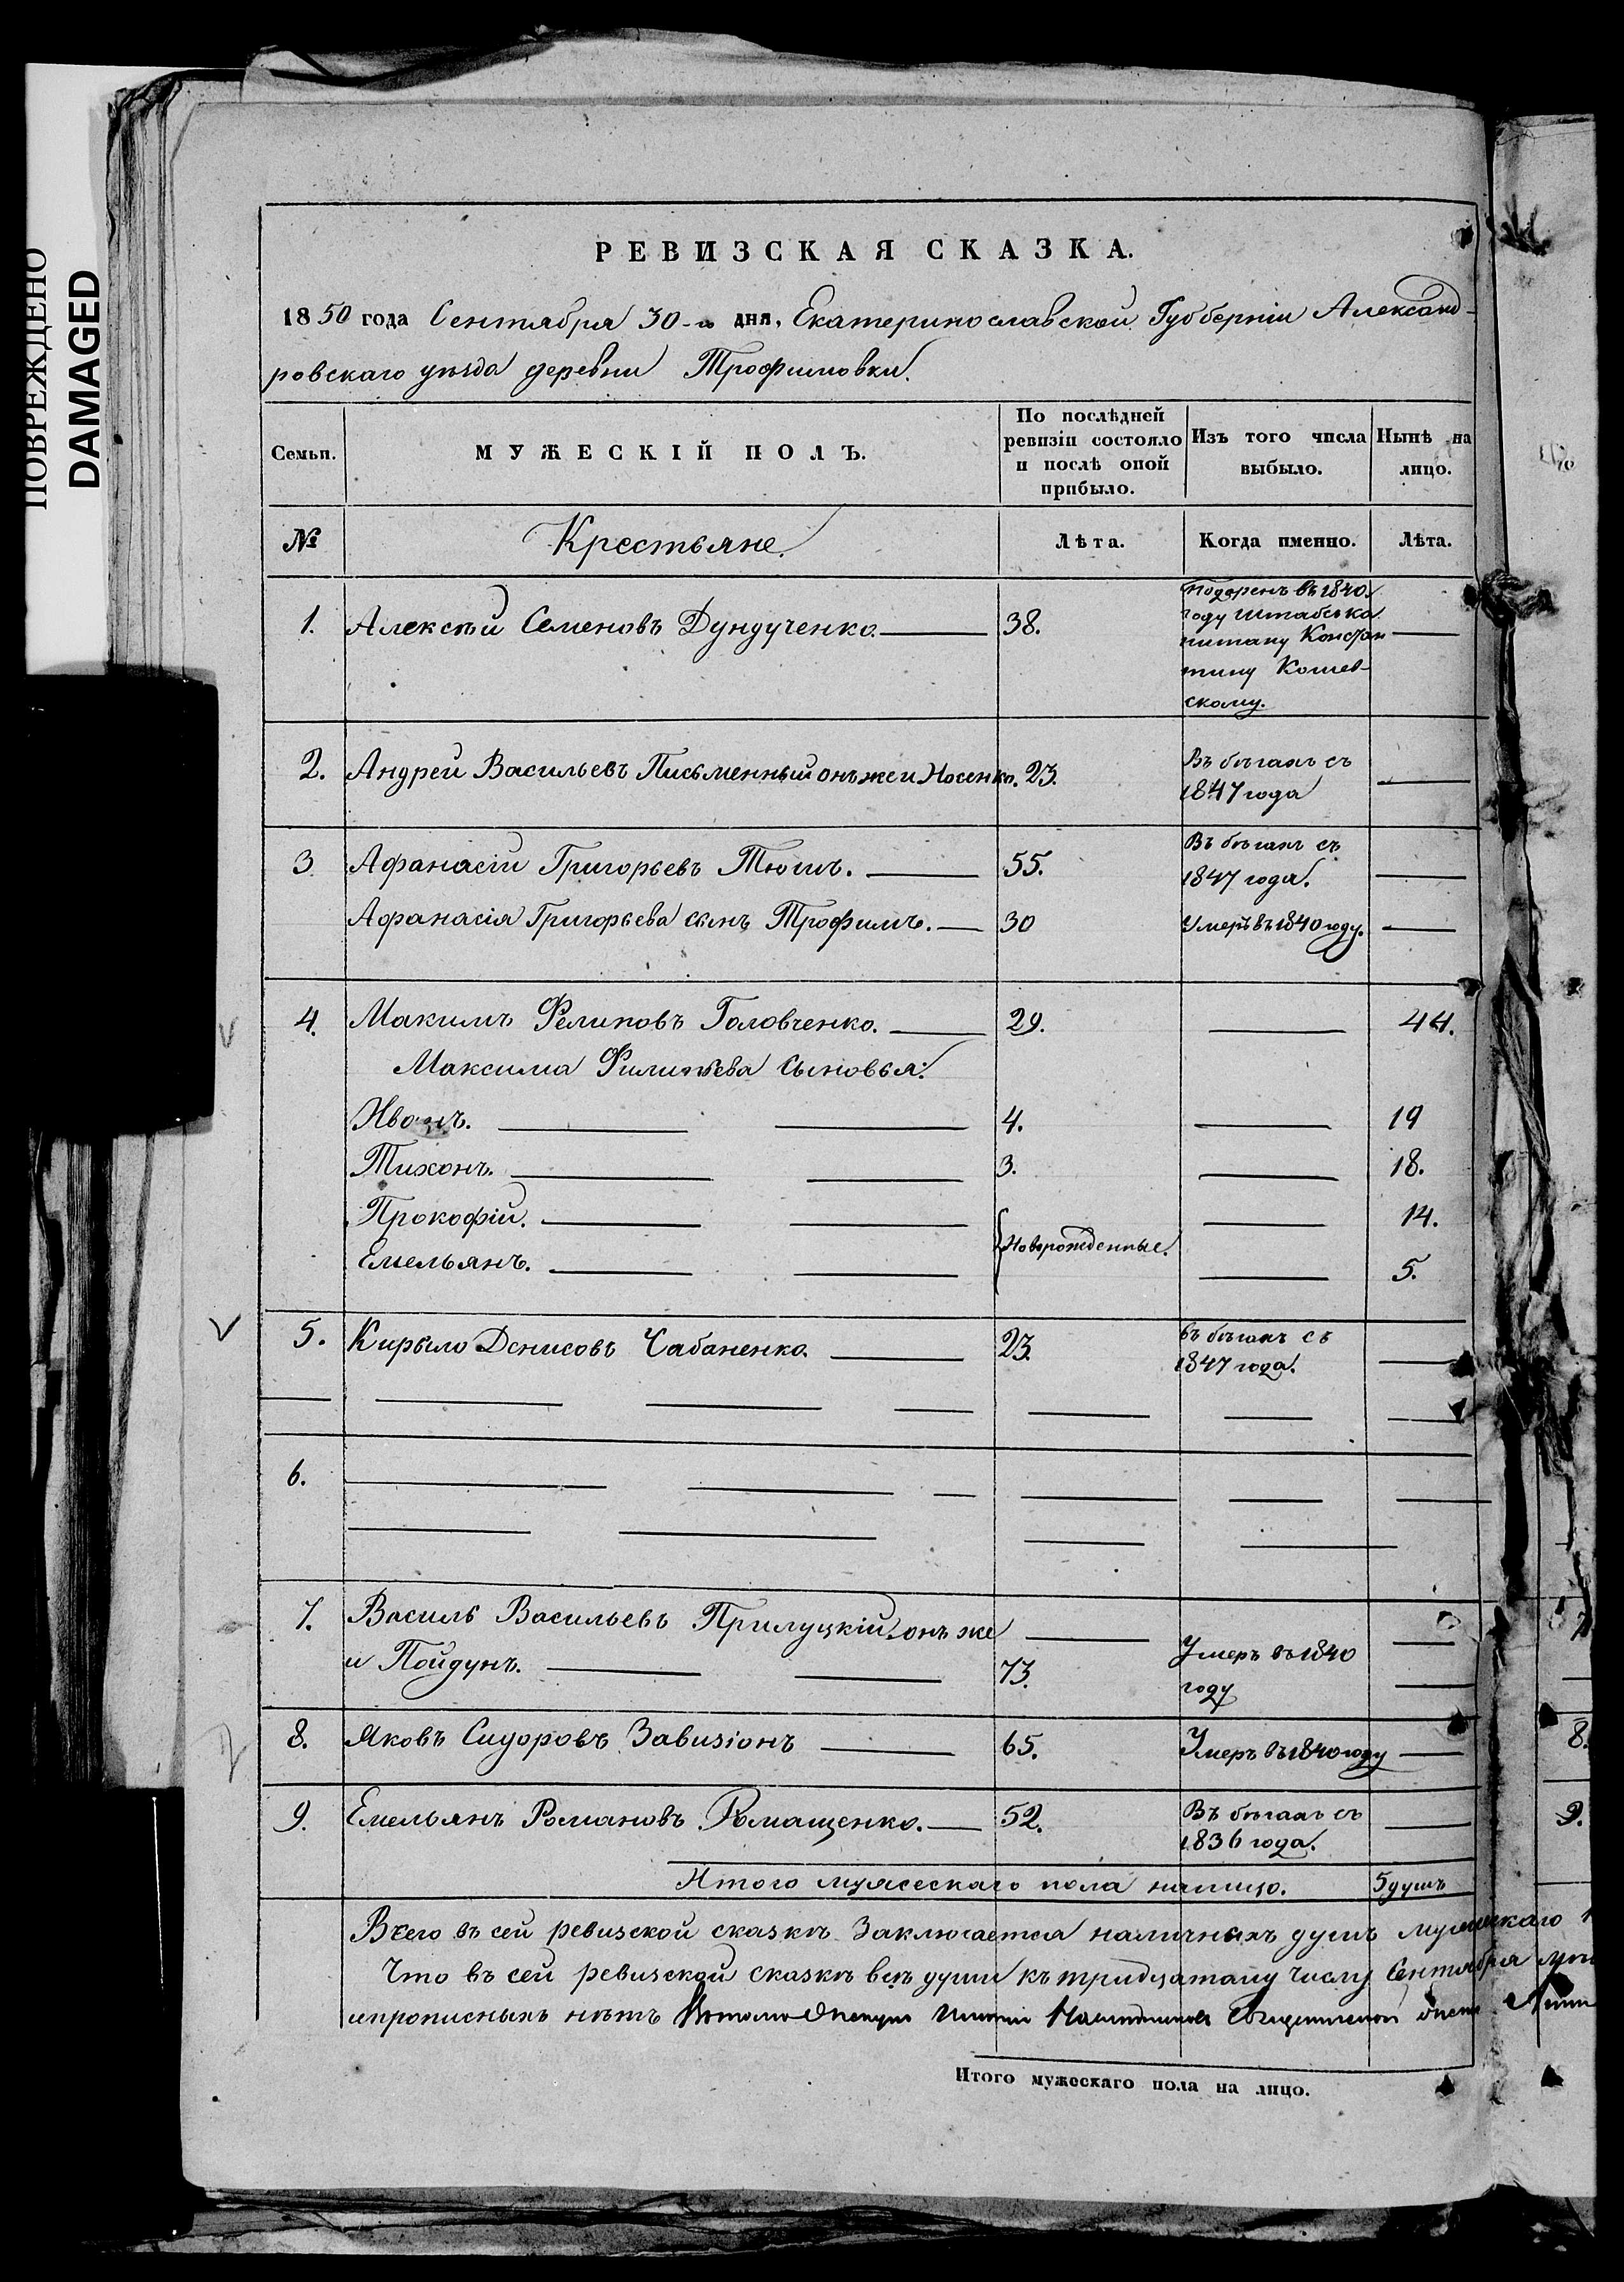 ПОВРЕЖДЕНО
DAMAGED
РЕВИЗСКАЯ СКАЗКА.
1850 года Сентября 30-го дня, Екатеринославской Губберніи Александ-
ровскаго уѣзда деревни Трофимовки.
Семьи. МУЖЕСКІЙ ПОЛЪ. По послѣдней ревизіи состояло и послѣ оной прибыло. Изъ того числа выбыло. Нынѣ на лицо.
№ Крестьяне. Лѣта. Когда именно. Лѣта.
1. Алексѣй Семеновъ Дундученко. 38. Подаренъ въ 1840.
году Штабсъ ка
питану Констан
тину Кошев-
скому.
2. Андрей Васильевъ Письменный онъ же и Носенко. 23. Въ бѣгахъ съ
1847 года
3. Афанасій Григорьевъ Тюшъ. 55. Въ бѣгахъ съ
1847 года.
Афанасія Григорьева сынъ Трофимъ. 30 Умеръ въ 1840 году.
4. Максимъ Фелиповъ Головченко. 29. 44.
Максима Филипьева сыновья:
Иванъ. 4. 19
Тихонъ. 3. 18.
Прокофій. 14.
Новорожденные.
Емельянъ. 5.
5. Кирыло Денисовъ Чабаненко. 23. въ бѣгахъ съ
1847 года.
6.
7. Василь Васильевъ Прилуцкій онъ же
и Пойдунъ. 73. Умеръ въ 1840
году
8. Яковъ Сидоровъ Завизіонъ 65. Умеръ въ 1840 году 8.
9. Емельянъ Романовъ Ромащенко. 52. Въ бѣгахъ съ
1836 года. 9.
Итого мужескаго пола налицо. 5 душъ
Всего въ сей ревизской сказкѣ Заключается наличныхъ душъ мужескаго
Что въ сей ревизской сказкѣ всѣ души къ тридцатому числу Сентября
ипрописныхъ нѣтъ
Итого мужескаго пола на лицо.